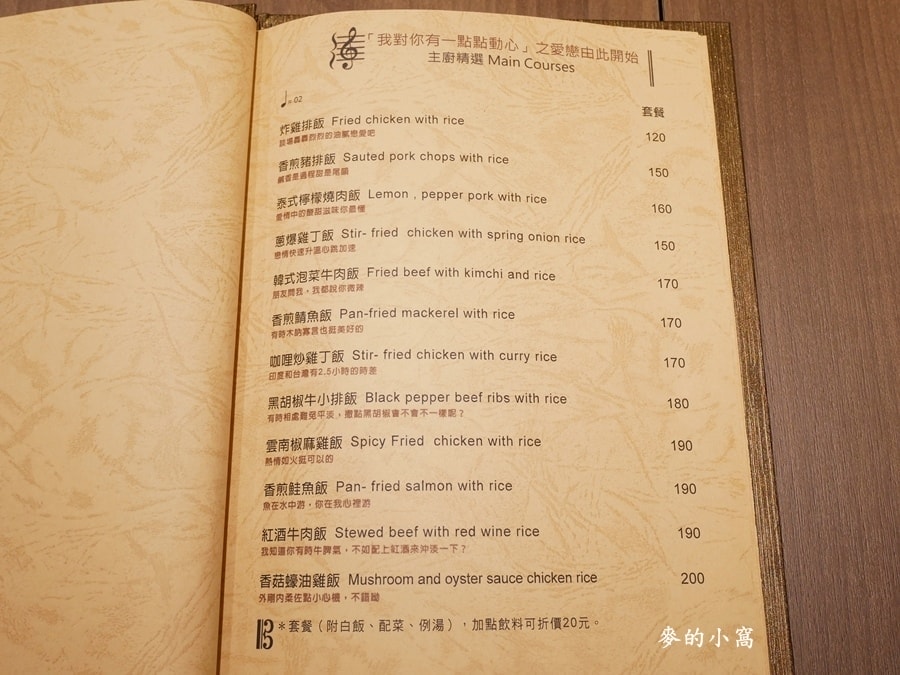 「我對你有一點點動心」之愛戀由此開始
主廚精選 Main Courses
02
套餐
炸雞排飯 Fried chicken with rice 120
談場轟轟烈烈的油膩戀愛吧
香煎豬排飯 Sauted pork chops with rice 150
鹹香是過程甜是尾韻
泰式檸檬燒肉飯 Lemon , pepper pork with rice 160
愛情中的酸甜滋味你最懂
蔥爆雞丁飯 Stir- fried chicken with spring onion rice 150
戀情快速升溫心跳加速
韓式泡菜牛肉飯 Fried beef with kimchi and rice 170
朋友問我，我都說你微辣
香煎鯖魚飯 Pan-fried mackerel with rice 170
有時木訥寡言也挺美好的
咖哩炒雞丁飯 Stir- fried chicken with curry rice 170
印度和台灣有2.5小時的時差
黑胡椒牛小排飯 Black pepper beef ribs with rice 180
有時相處難免平淡，撒點黑胡椒會不會不一樣呢？
雲南椒麻雞飯 Spicy Fried chicken with rice 190
熱情如火挺可以的
香煎鮭魚飯 Pan- fried salmon with rice 190
魚在水中游，你在我心裡游
紅酒牛肉飯 Stewed beef with red wine rice 190
我知道你有時牛脾氣，不如配上紅酒來沖淡一下？
香菇蠔油雞飯 Mushroom and oyster sauce chicken rice 200
外剛內柔佐點小心機，不錯呦
＊套餐（附白飯、配菜、例湯），加點飲料可折價20元。
麥的小窩